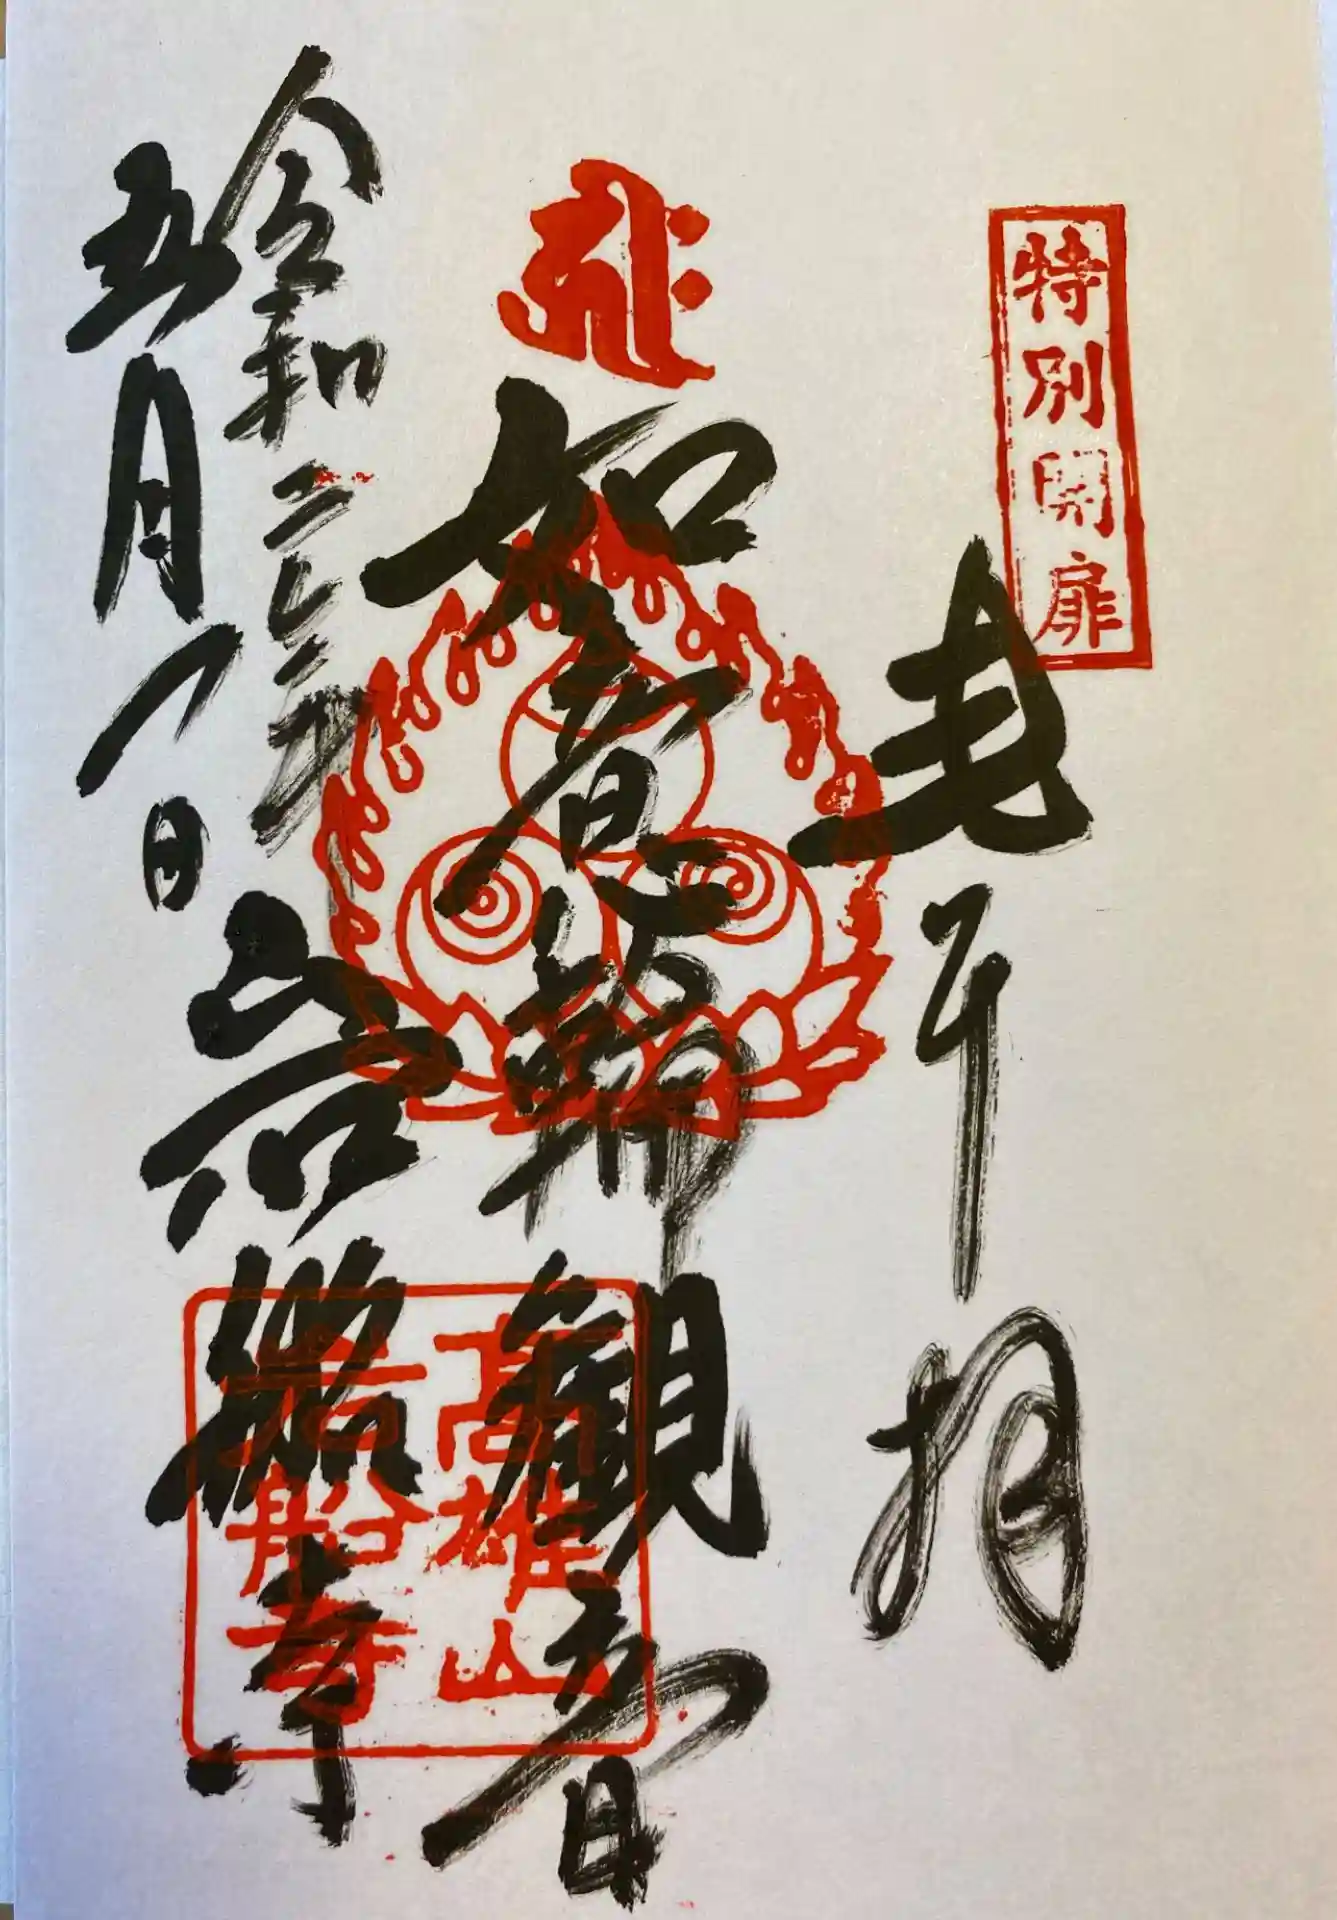 特別開扉
奉拝
如意輪観音
令和元年
五月一日
岩船寺
高雄山
岩船寺